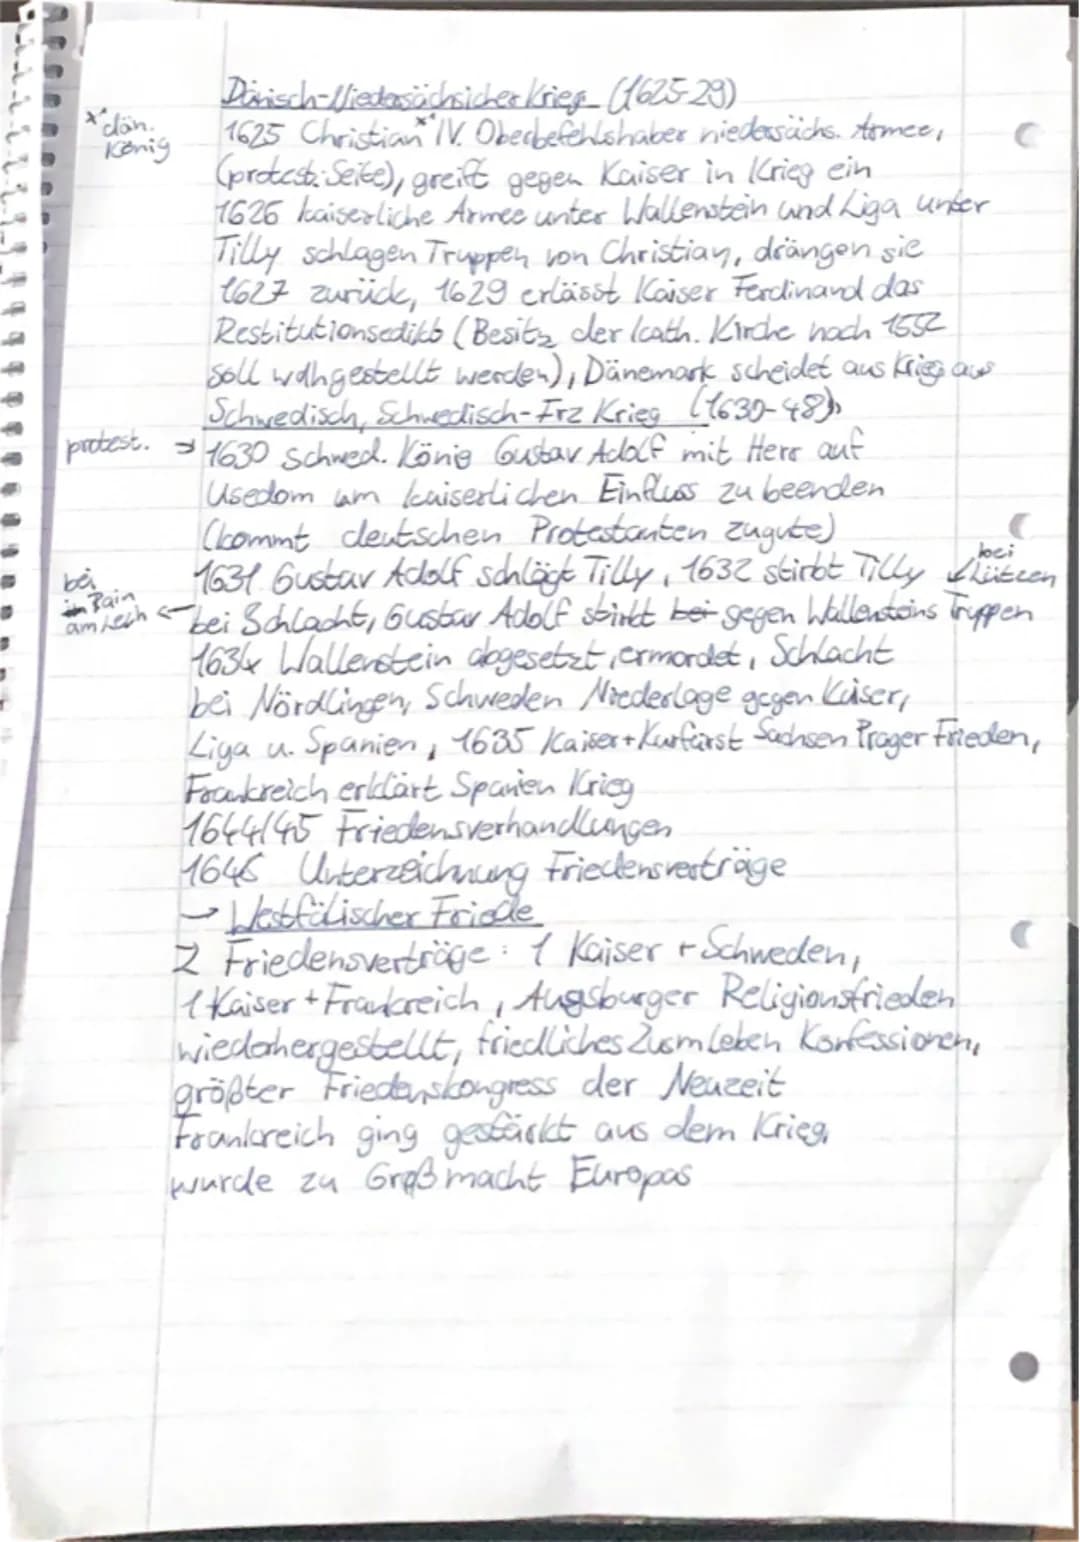 Dänisch-Niedersächsicher Krieg (1625-29)
x' dän. König
1625 Christian x' IV. Oberbefehlshaber niedersächs. Armee,
(protest. Seite), greift gegen Kaiser in Krieg ein
1626 kaiserliche Armee unter Wallenstein und Liga unter
Tilly schlagen Truppen von Christian, drängen sie
1627 zurück, 1629 erlässt Kaiser Ferdinand das
Restitutionsedikt (Besitz der kath. Kirche nach 1552
soll wdhgestellt werden), Dänemark scheidet aus Krieg aus
Schwedisch, Schwedisch-Frz Krieg (1630-48)
protest. → 1630 schwed. König Gustav Adolf mit Herr auf
Usedom um kaiserlichen Einfluss zu beenden
(kommt deutschen Protestanten zugute)
1631 Gustav Adolf schlägt Tilly, 1632 stirbt Tilly ↙ bei Lützen
bei Rain am Lech ← bei Schlacht, Gustav Adolf stirbt bei gegen Wallensteins Truppen
1634 Wallenstein abgesetzt, ermordet, Schlacht
bei Nördlingen, Schweden Niederlage gegen Kaiser,
Liga u. Spanien, 1635 Kaiser + Kurfürst Sachsen Prager Frieden,
Frankreich erklärt Spanien Krieg
1644/45 Friedensverhandlungen
Unterzeichnung Friedensverträge
→ Westfälischer Friede
2 Friedensverträge: 1 Kaiser + Schweden,
1 Kaiser + Frankreich, Augsburger Religionsfrieden
wiederhergestellt, friedliches Zusmleben Konfessionen,
größter Friedenskongress der Neuzeit
Frankreich ging gestärkt aus dem Krieg,
wurde zu Großmacht Europas